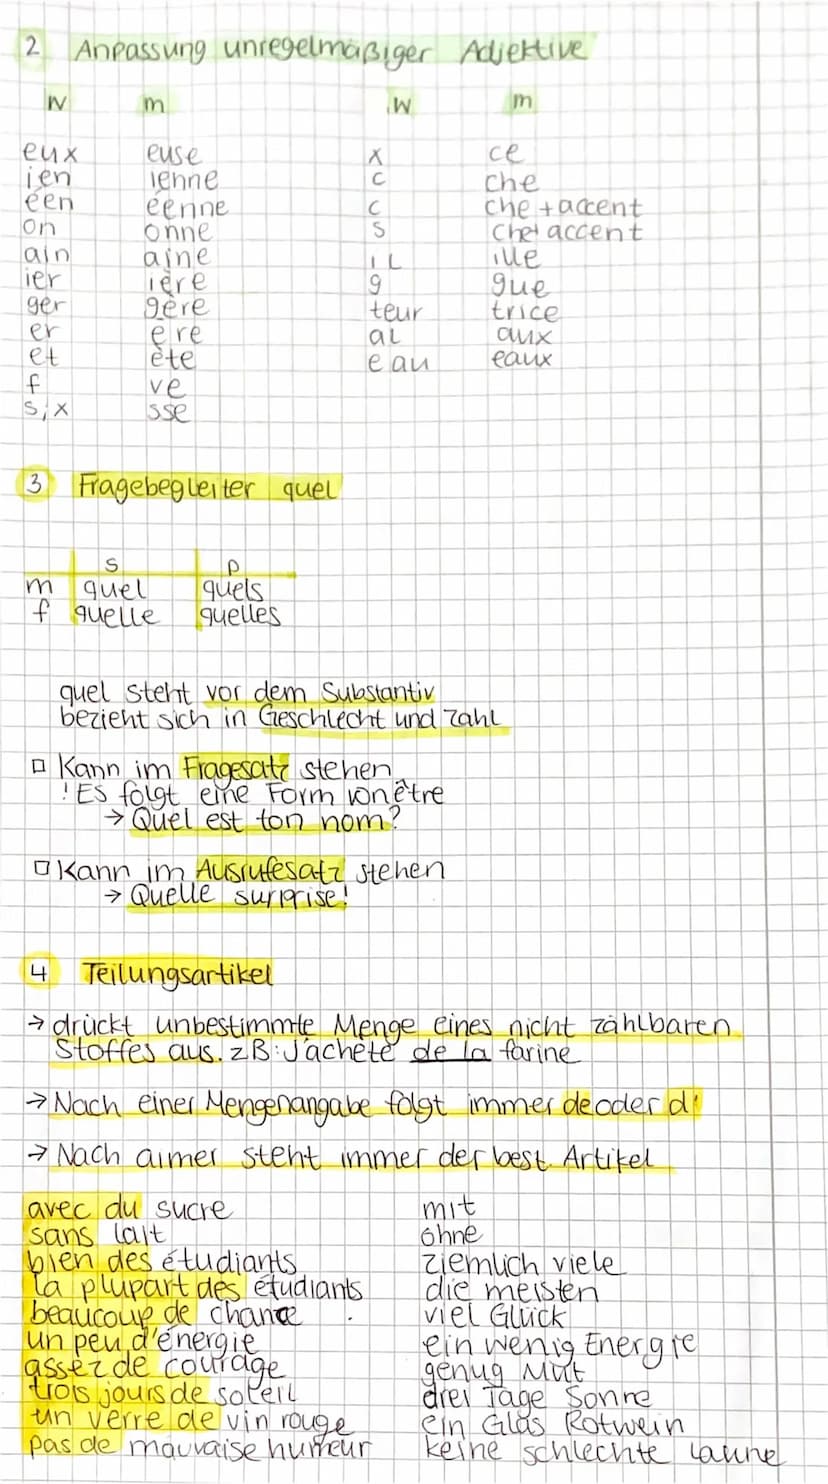 2 Anpassung unregelmäßiger Adjektive
w m w m
eux euse x ce
ien ienne c che
éen éenne c che + accent
on onne s che + accent
ain aine il ille
ier ière g gue
ger gère teur trice
er ère al aux
et ète eau eaux
f ve
s, x sse
3 Fragebegleiter quel
s p
m quel quels
f quelle quelles
quel steht vor dem Substantiv
bezieht sich in Geschlecht und Zahl
□ Kann im Fragesatz stehen
! Es folgt eine Form von être
→ Quel est ton nom?
□ Kann im Ausrufesatz stehen
→ Quelle surprise!
4 Teilungsartikel
→ drückt unbestimmte Menge eines nicht zählbaren
Stoffes aus. zB: J'achete de la farine
→ Nach einer Mengenangabe folgt immer de oder d'
→ Nach aimer steht immer der best. Artikel
avec du sucre mit
sans lait ohne
bien des étudiants ziemlich viele
la plupart des étudiants die meisten
beaucoup de chance viel Glück
un peu d'énergie ein wenig Energie
assez de courage genug Mut
trois jours de soleil drei Tage Sonne
un verre de vin rouge ein Glas Rotwein
pas de mauvaise humeur keine schlechte Laune